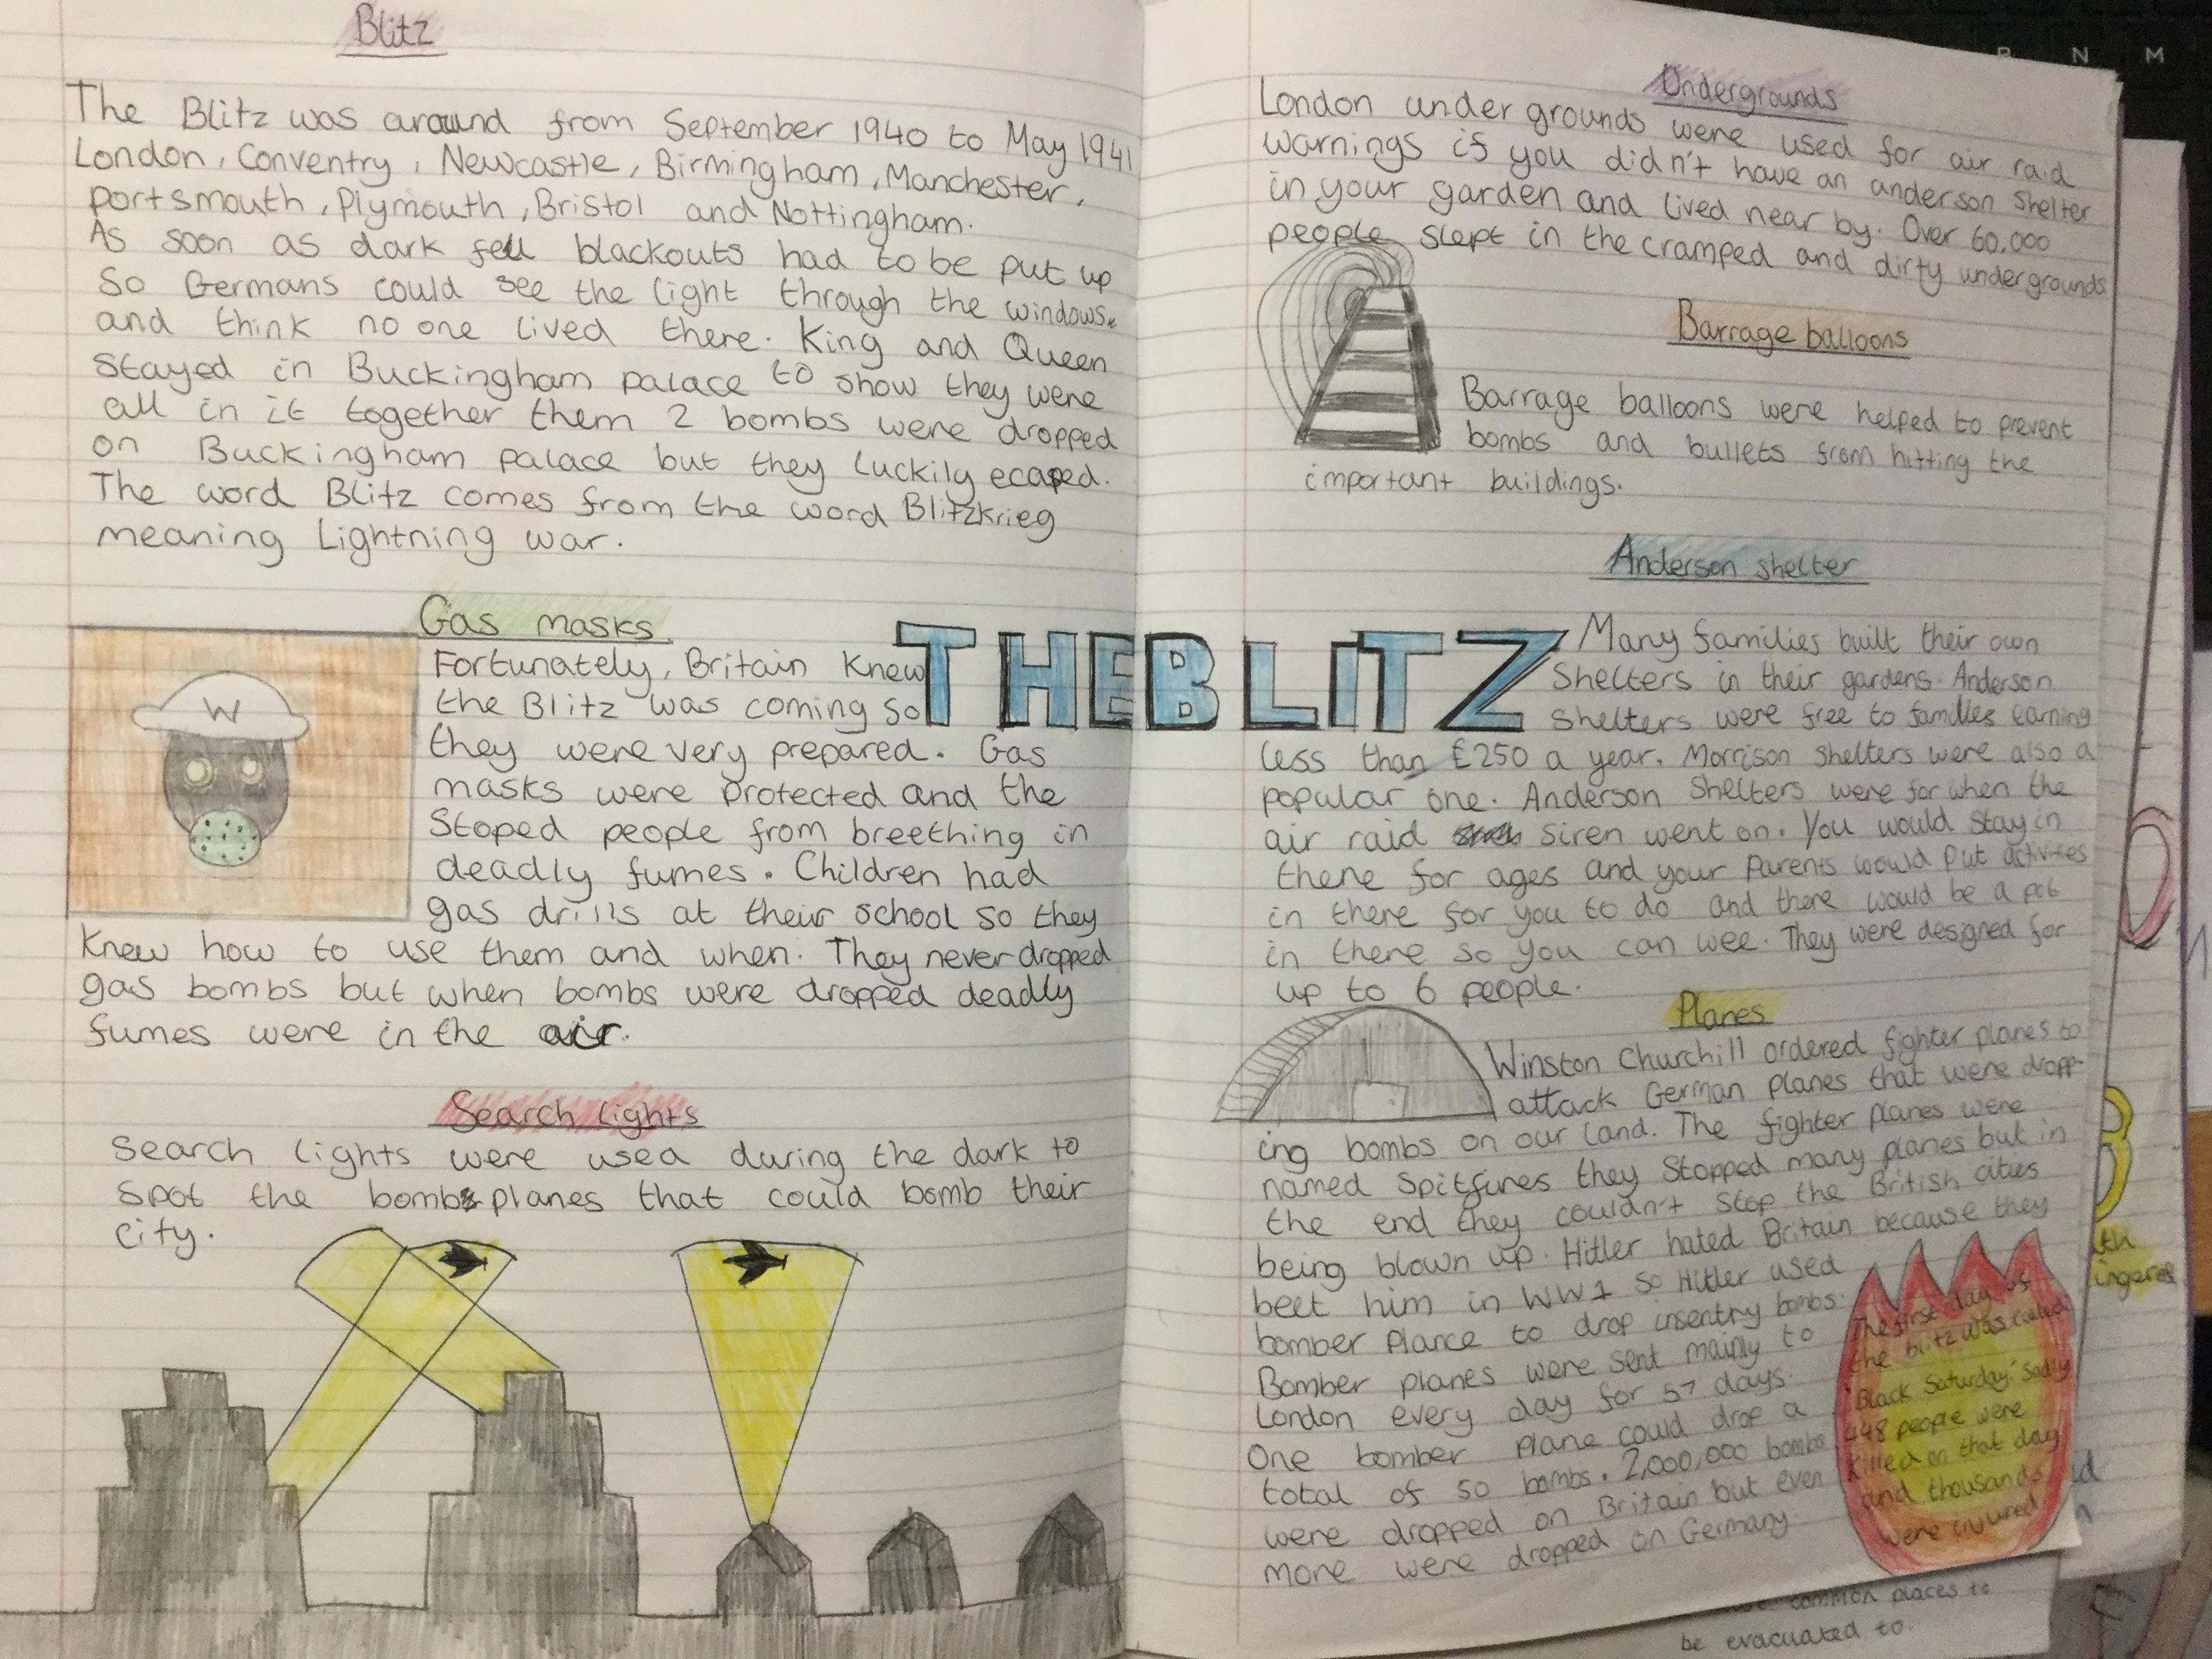 Blitz
The Blitz was around from September 1940 to May 1941
London, Conventry, Newcastle, Birmingham, Manchester,
portsmouth, Plymouth, Bristol and Nottingham.
As soon as dark fell blackouts had to be put up
so Germans could see the light through the windows.
and think no one lived there. King and Queen
stayed in Buckingham palace to show they were
all in it together them 2 bombs were dropped
on Buckingham palace but they luckily ecaped.
The word Blitz comes from the word Blitzkrieg
meaning Lightning war.
Gas masks
Fortunately, Britain knew
the Blitz was coming so
they were very prepared. Gas
masks were protected and the
stoped people from breething in
deadly fumes. Children had
gas drills at their school so they
knew how to use them and when. They never dropped
gas bombs but when bombs were dropped deadly
fumes were in the air.
W
Search lights
Search lights were used during the dark to
spot the bomb planes that could bomb their
city.
THE BLITZ
Undergrounds
London under grounds were used for air raid
warnings if you didn't have an anderson shelter
in your garden and lived near by. Over 60,000
people slept in the cramped and dirty undergrounds
Barrage balloons
Barrage balloons were helped to prevent
bombs and bullets from hitting the
important buildings.
Anderson shelter
Many families built their own
shelters in their gardens. Anderson
shelters were free to families earning
less than £250 a year. Morrison shelters were also a
popular one. Anderson shelters were for when the
air raid siren went on. You would stay in
there for ages and your parents would put activites
in there for you to do and there would be a pot
in there so you can wee. They were designed for
up to 6 people.
Planes
Winston Churchill ordered fighter planes to
attack German planes that were dropp-
ing bombs on our land. The fighter planes were
named Spitfires they stopped many planes but in
the end they couldn't stop the British cities
being blown up. Hitler hated Britain because they
beet him in WW1 so Hitler used
bomber plance to drop insentry bombs.
Bomber planes were sent mainly to
London every day for 57 days.
One bomber plane could drop a
total of 50 bombs. 2,000,000 bombs
were dropped on Britain but even
more were dropped on Germany.
The first day of
the blitz was called
'Black Saturday' sadly
448 people were
killed on that day
and thousands
were injured
common places to
be evacuated to.
B N M